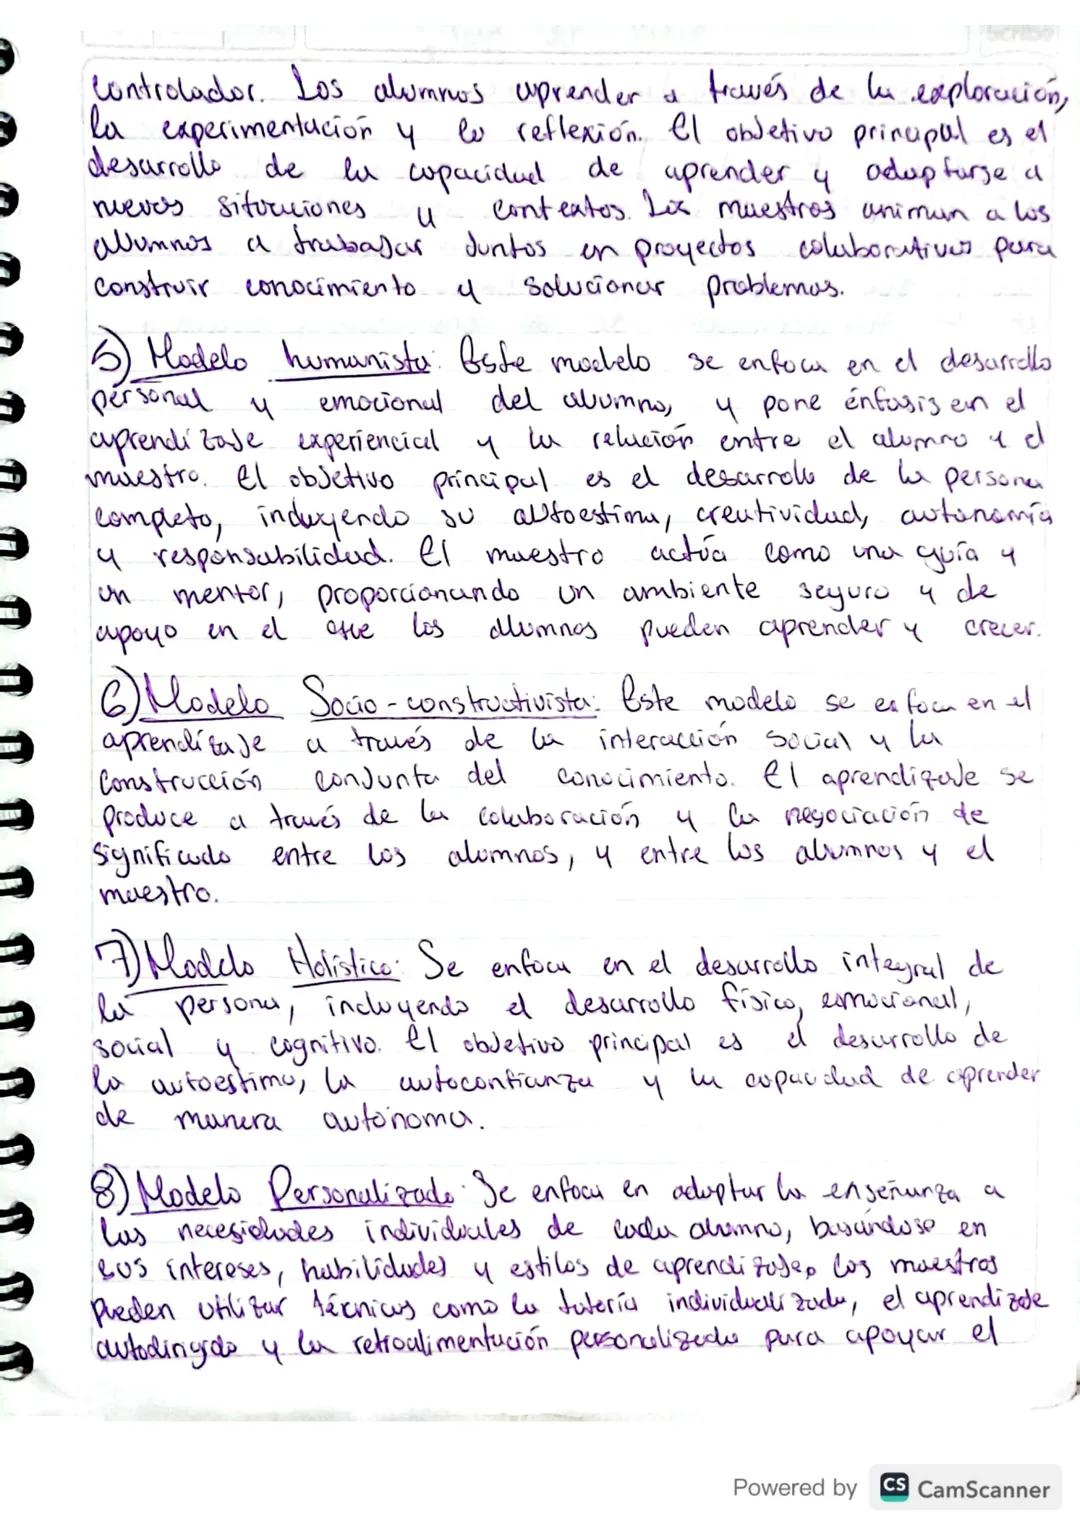 controlador. Los alumnos aprender a través de la exploración,
la experimentación y la reflexión. El objetivo principal es el
desarrollo de la capacidad de aprender y adaptarse a
nuevos situaciones y contextos. Los maestros animan a los
alumnos a trabajar juntos en proyectos colaborativos para
construir conocimiento y solucionar problemas.
5) Modelo humanista: Este modelo se enfoca en el desarrollo
personal y emocional del alumno, y pone énfasis en el
aprendizaje experiencial y la relación entre el alumno y el
maestro. El objetivo principal es el desarrollo de la persona
completo, incluyendo su autoestima, creatividad, autonomía
y responsabilidad. El maestro actúa como una guía y
un mentor, proporcionando un ambiente seguro y de
apoyo en el que los alumnos pueden aprender y crecer.
6) Modelo Socio-constructivista: Este modelo se enfoca en el
aprendizaje a través de la interacción social y la
Construcción conjunta del conocimiento. El aprendizaje se
produce a través de la colaboración y la negociación de
significado entre los alumnos, y entre los alumnos y el
maestro.
7) Modelo Holístico: Se enfoca en el desarrollo integral de
la persona, incluyendo el desarrollo físico, esmocional,
social y cognitivo. El objetivo principal es el desarrollo de
la autoestima, la autoconfianza y la capacidad de aprender
de manera autónoma.
8) Modelo Personalizado: Se enfoca en adaptar la enseñanza a
las necesidades individuales de cada alumno, basándose en
sus intereses, habilidades y estilos de aprendizaje, los maestros
pueden utilizar técnicas como la tutería individualizada, el aprendizaje
autodirigido y la retroalimentación personalizada para apoyar el
Powered by CS CamScanner